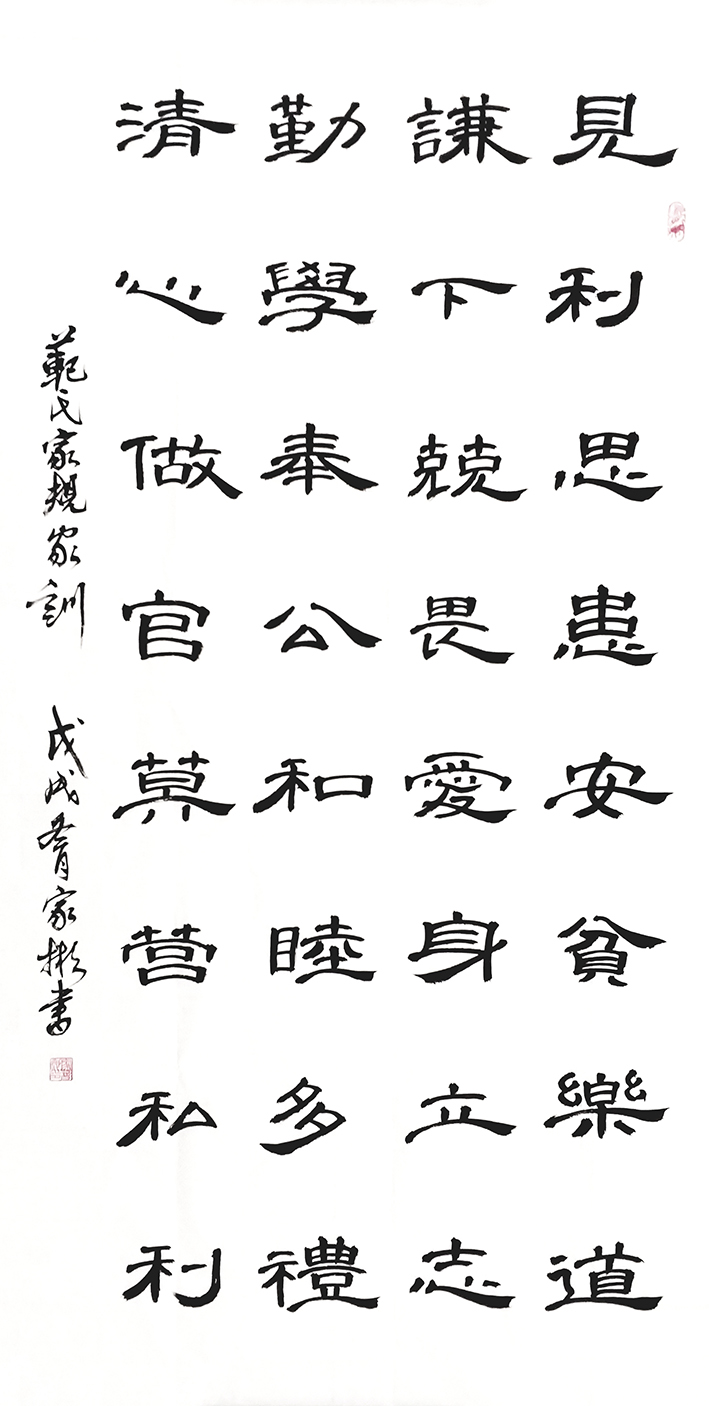 見利思患安貧樂道
謙下兢畏愛身立志
勤學奉公和睦多禮
清心做官莫營私利
範氏家規家訓 戊戌 家彬書